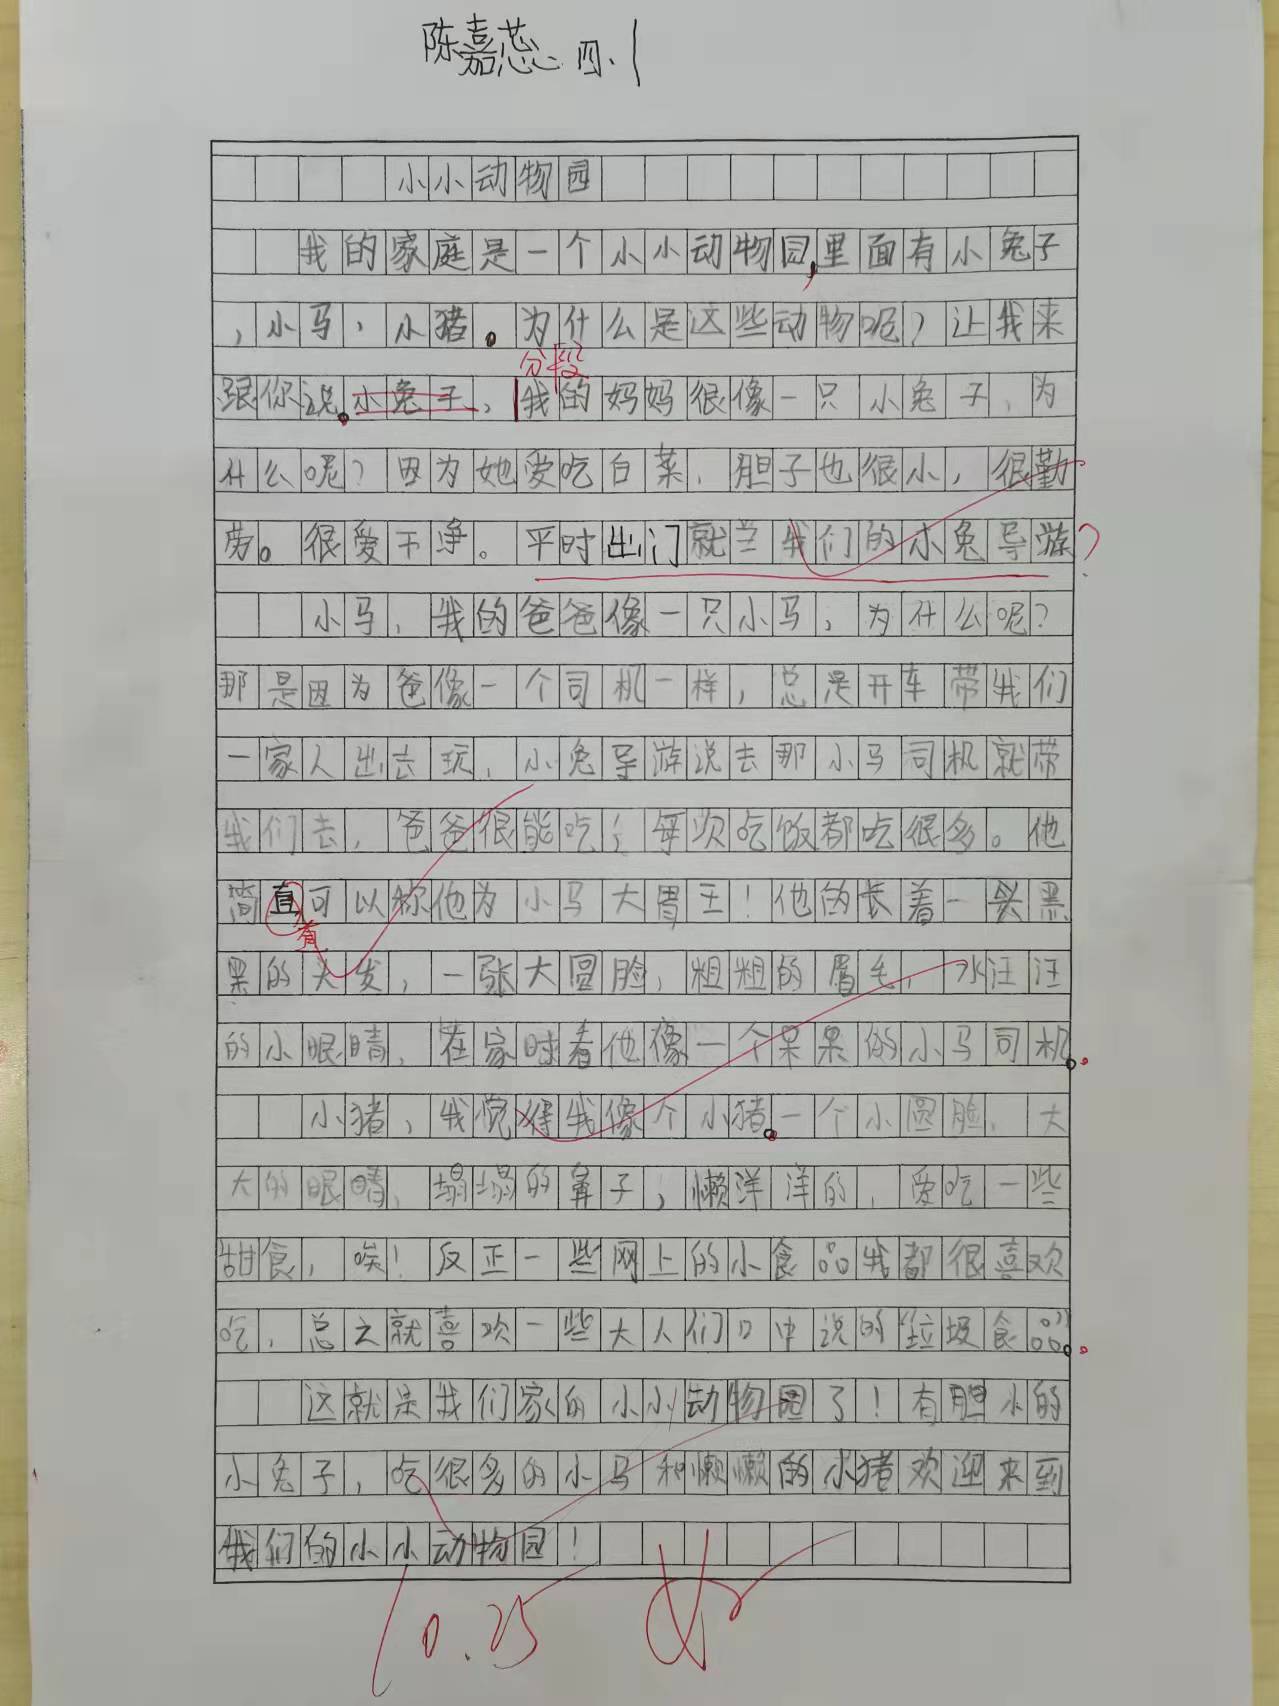 陈嘉蕊 四.1
小小动物园
我的家庭是一个小小动物园,里面有小兔子
，小马，小猪。为什么是这些动物呢？让我来
分段
跟你说。小兔子，我的妈妈很像一只小兔子，为
什么呢？因为她爱吃白菜，胆子也很小，很勤
劳。很爱干净。平时出门就当我们的小兔导游?
小马，我的爸爸像一只小马，为什么呢？
那是因为爸像一个司机一样，总是开车带我们
一家人出去玩，小兔导游说去那小马司机就带
我们去，爸爸很能吃；每次吃饭都吃很多。他
简直可以称他为小马大胃王！他的长着一头黑
直
黑的头发，一张大圆脸，粗粗的眉毛，水汪汪
的小眼睛，在家时看他像一个呆呆的小马司机。
小猪，我觉得我像个小猪。一个小圆脸，大
大的眼睛，塌塌的鼻子，懒洋洋的，爱吃一些
甜食，唉！反正一些网上的小食品我都很喜欢
吃，总之就喜欢一些大人们口中说的“垃圾食品”。
这就是我们家的小小动物园了！有胆小的
小兔子，吃很多的小马和懒懒的小猪欢迎来到
我们的小小动物园！
10.25